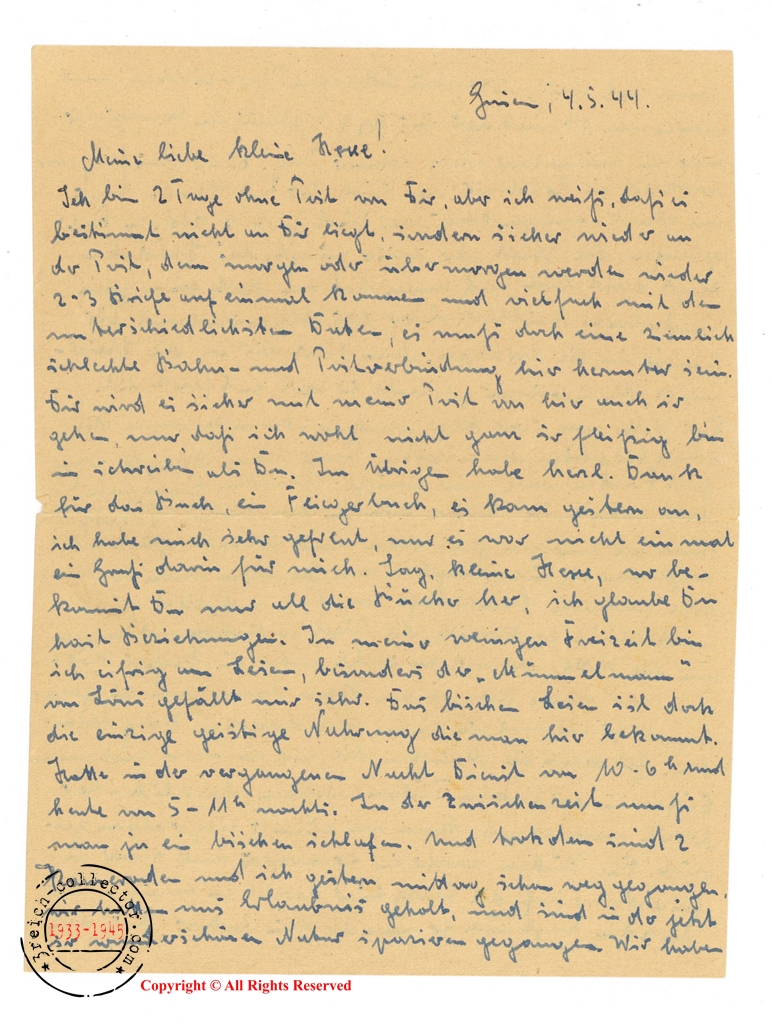 Gusen, 4.5.44.
Meine liebe kleine Hexe!
Ich bin 2 Tage ohne Post von Dir, aber ich weiß, daß es
bestimmt nicht an Dir liegt, sondern sicher wieder an
der Post, denn morgen oder übermorgen werden wieder
2-3 Briefe auf einmal kommen und vielfach mit den
unterschiedlichsten Daten, es muß doch eine ziemlich
schlechte Bahn- und Postverbindung hier herunter sein.
Dir wird es sicher mit meiner Post von hier auch so
gehen, nur daß ich wohl nicht ganz so fleißig bin
im schreiben als Du. Im Übrigen habe herzl. Dank
für das Buch, ein Fliegerbuch, es kam gestern an,
ich habe mich sehr gefreut, nur es war nicht einmal
ein Gruß darin für mich. Sag, kleine Hexe, wo be-
kommst Du nur all die Bücher her, ich glaube Du
hast Beziehungen. In meiner wenigen Freizeit bin
ich eifrig am Lesen, besonders der „Mümmelmann"
von Löns gefällt mir sehr. Das bischen Lesen ist doch
die einzige geistige Nahrung die man hier bekommt.
Hatte in der vergangenen Nacht Dienst von 10-6h und
heute von 5-11h nachts. In der Zwischenzeit muß
man ja ein bischen schlafen. Und trotzdem sind 2
Kameraden und ich gestern mittag schon weg gegangen,
wir hatten uns Erlaubnis geholt, und sind in der jetzt
so wunderschönen Natur spazieren gegangen. Wir haben
3reich-collector.com
1933-1945
Copyright © All Rights Reserved